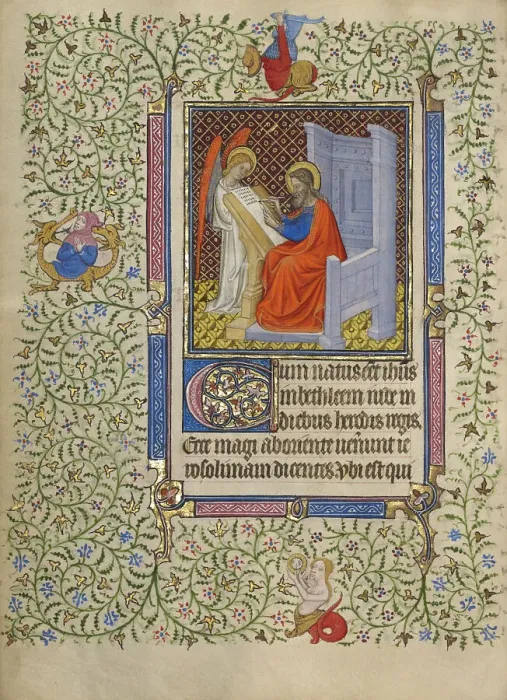 Cum natus eẽt ihũs
in bethleem iude in
diebus herodis regis,
Ecce magi ab oriente uenerunt ie
rosolimam dicentes Vbi est qui